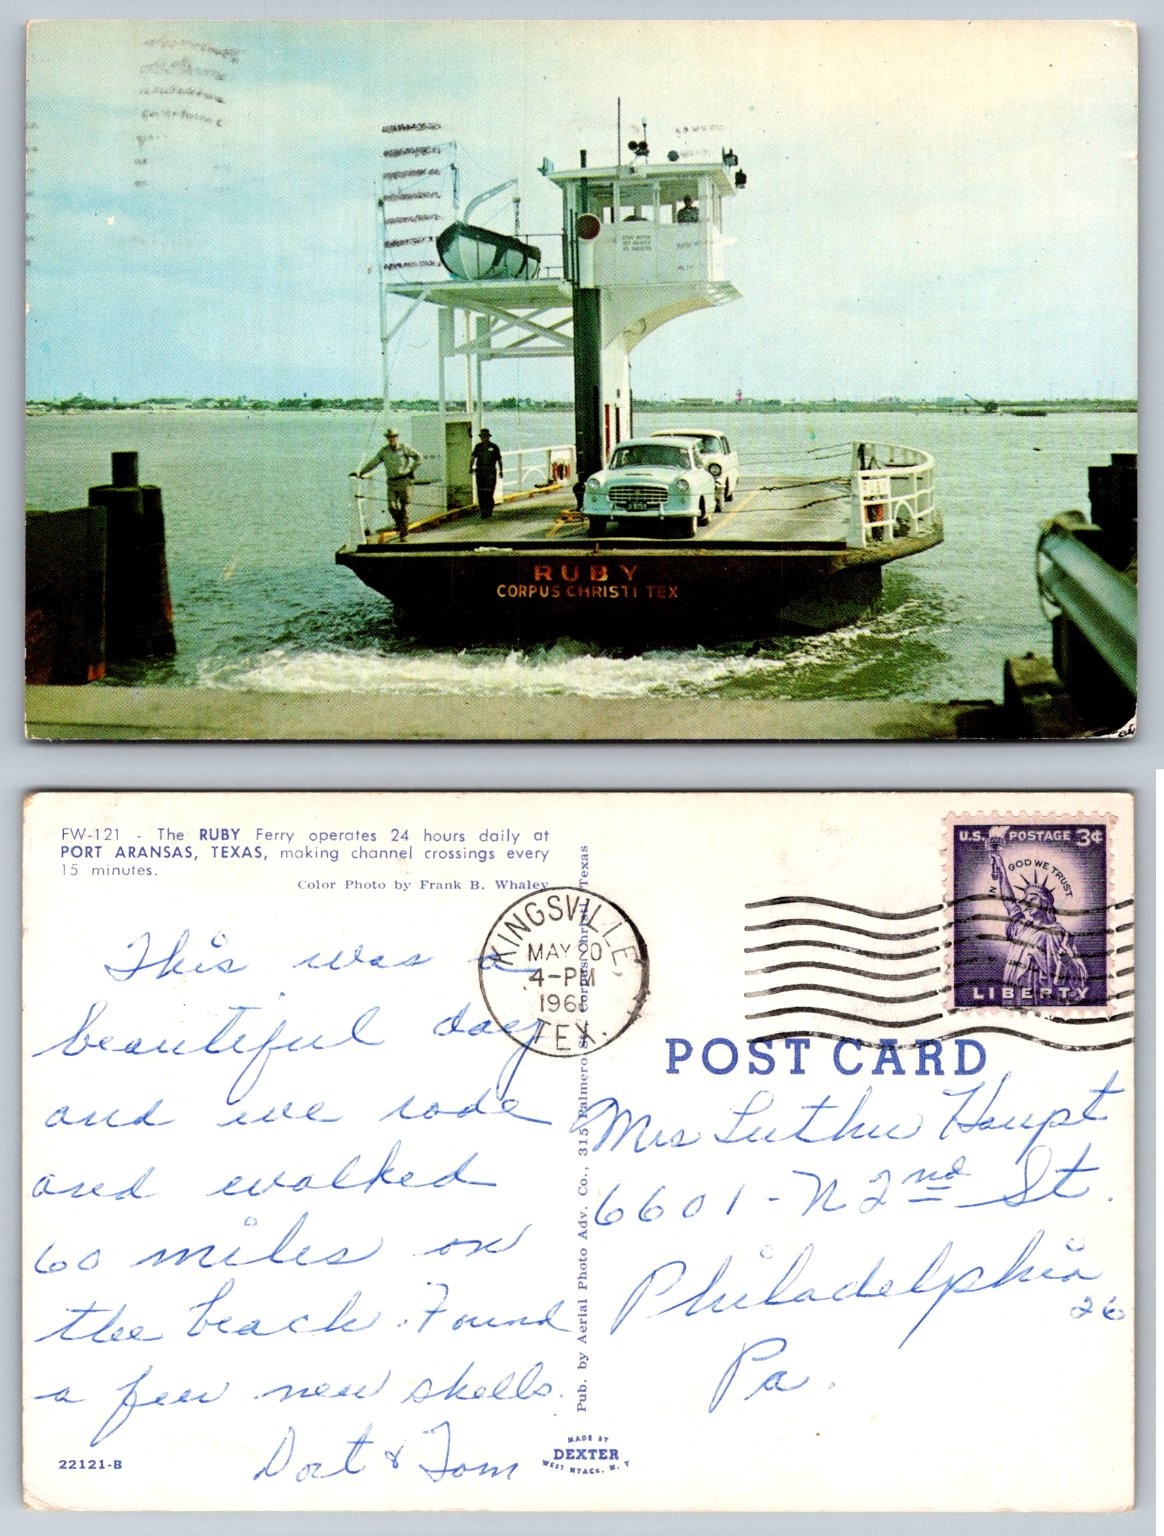 RUBY
CORPUS CHRISTI TEX
FW-121 - The RUBY Ferry operates 24 hours daily at
PORT ARANSAS, TEXAS, making channel crossings every
15 minutes.
Color Photo by Frank B. Whaley
This was a
beautiful day
and we rode
and walked
60 miles on
the beach. Found
a few new shells.
Dort & Tom
22121-B
KINGSVILLE,
MAY 20
4-PM
196
TEX.
Pub. by Aerial Photo Adv. Co., 315 Palmero St., Corpus Christi, Texas
MADE BY
DEXTER
WEST NYACK, N. Y.
U.S. POSTAGE 3¢
IN GOD WE TRUST
LIBERTY
POST CARD
Mrs Luther Haupt
6601 - N 2nd St.
Philadelphia
26
Pa.